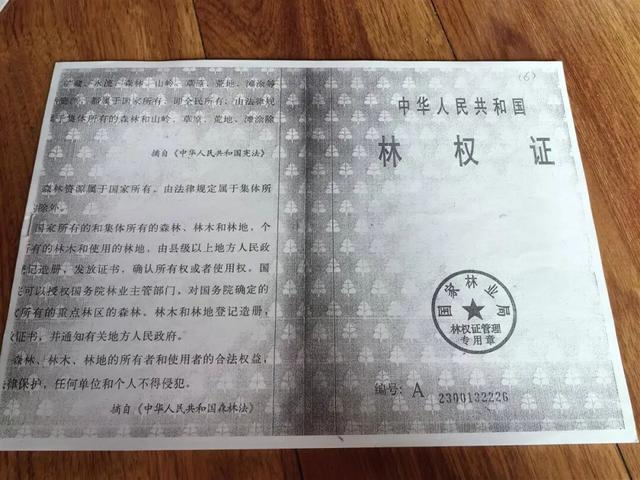 矿藏、水流、森林、山岭、草原、荒地、滩涂等
都属于国家所有，即全民所有；由法律规
属于集体所有的森林和山岭、草原、荒地、滩涂除
摘自《中华人民共和国宪法》
森林资源属于国家所有，由法律规定属于集体所
的除外。
国家所有的和集体所有的森林、林木和林地，个
所有的林木和使用的林地，由县级以上地方人民政
登记造册，发放证书，确认所有权或者使用权。国
可以授权国务院林业主管部门，对国务院确定的
所有的重点林区的森林、林木和林地登记造册，
证书，并通知有关地方人民政府。
森林、林木、林地的所有者和使用者的合法权益，
法律保护，任何单位和个人不得侵犯。
摘自《中华人民共和国森林法》
(6)
中华人民共和国
林权证
国家林业局
林权证管理
专用章
编号：A 2300132226